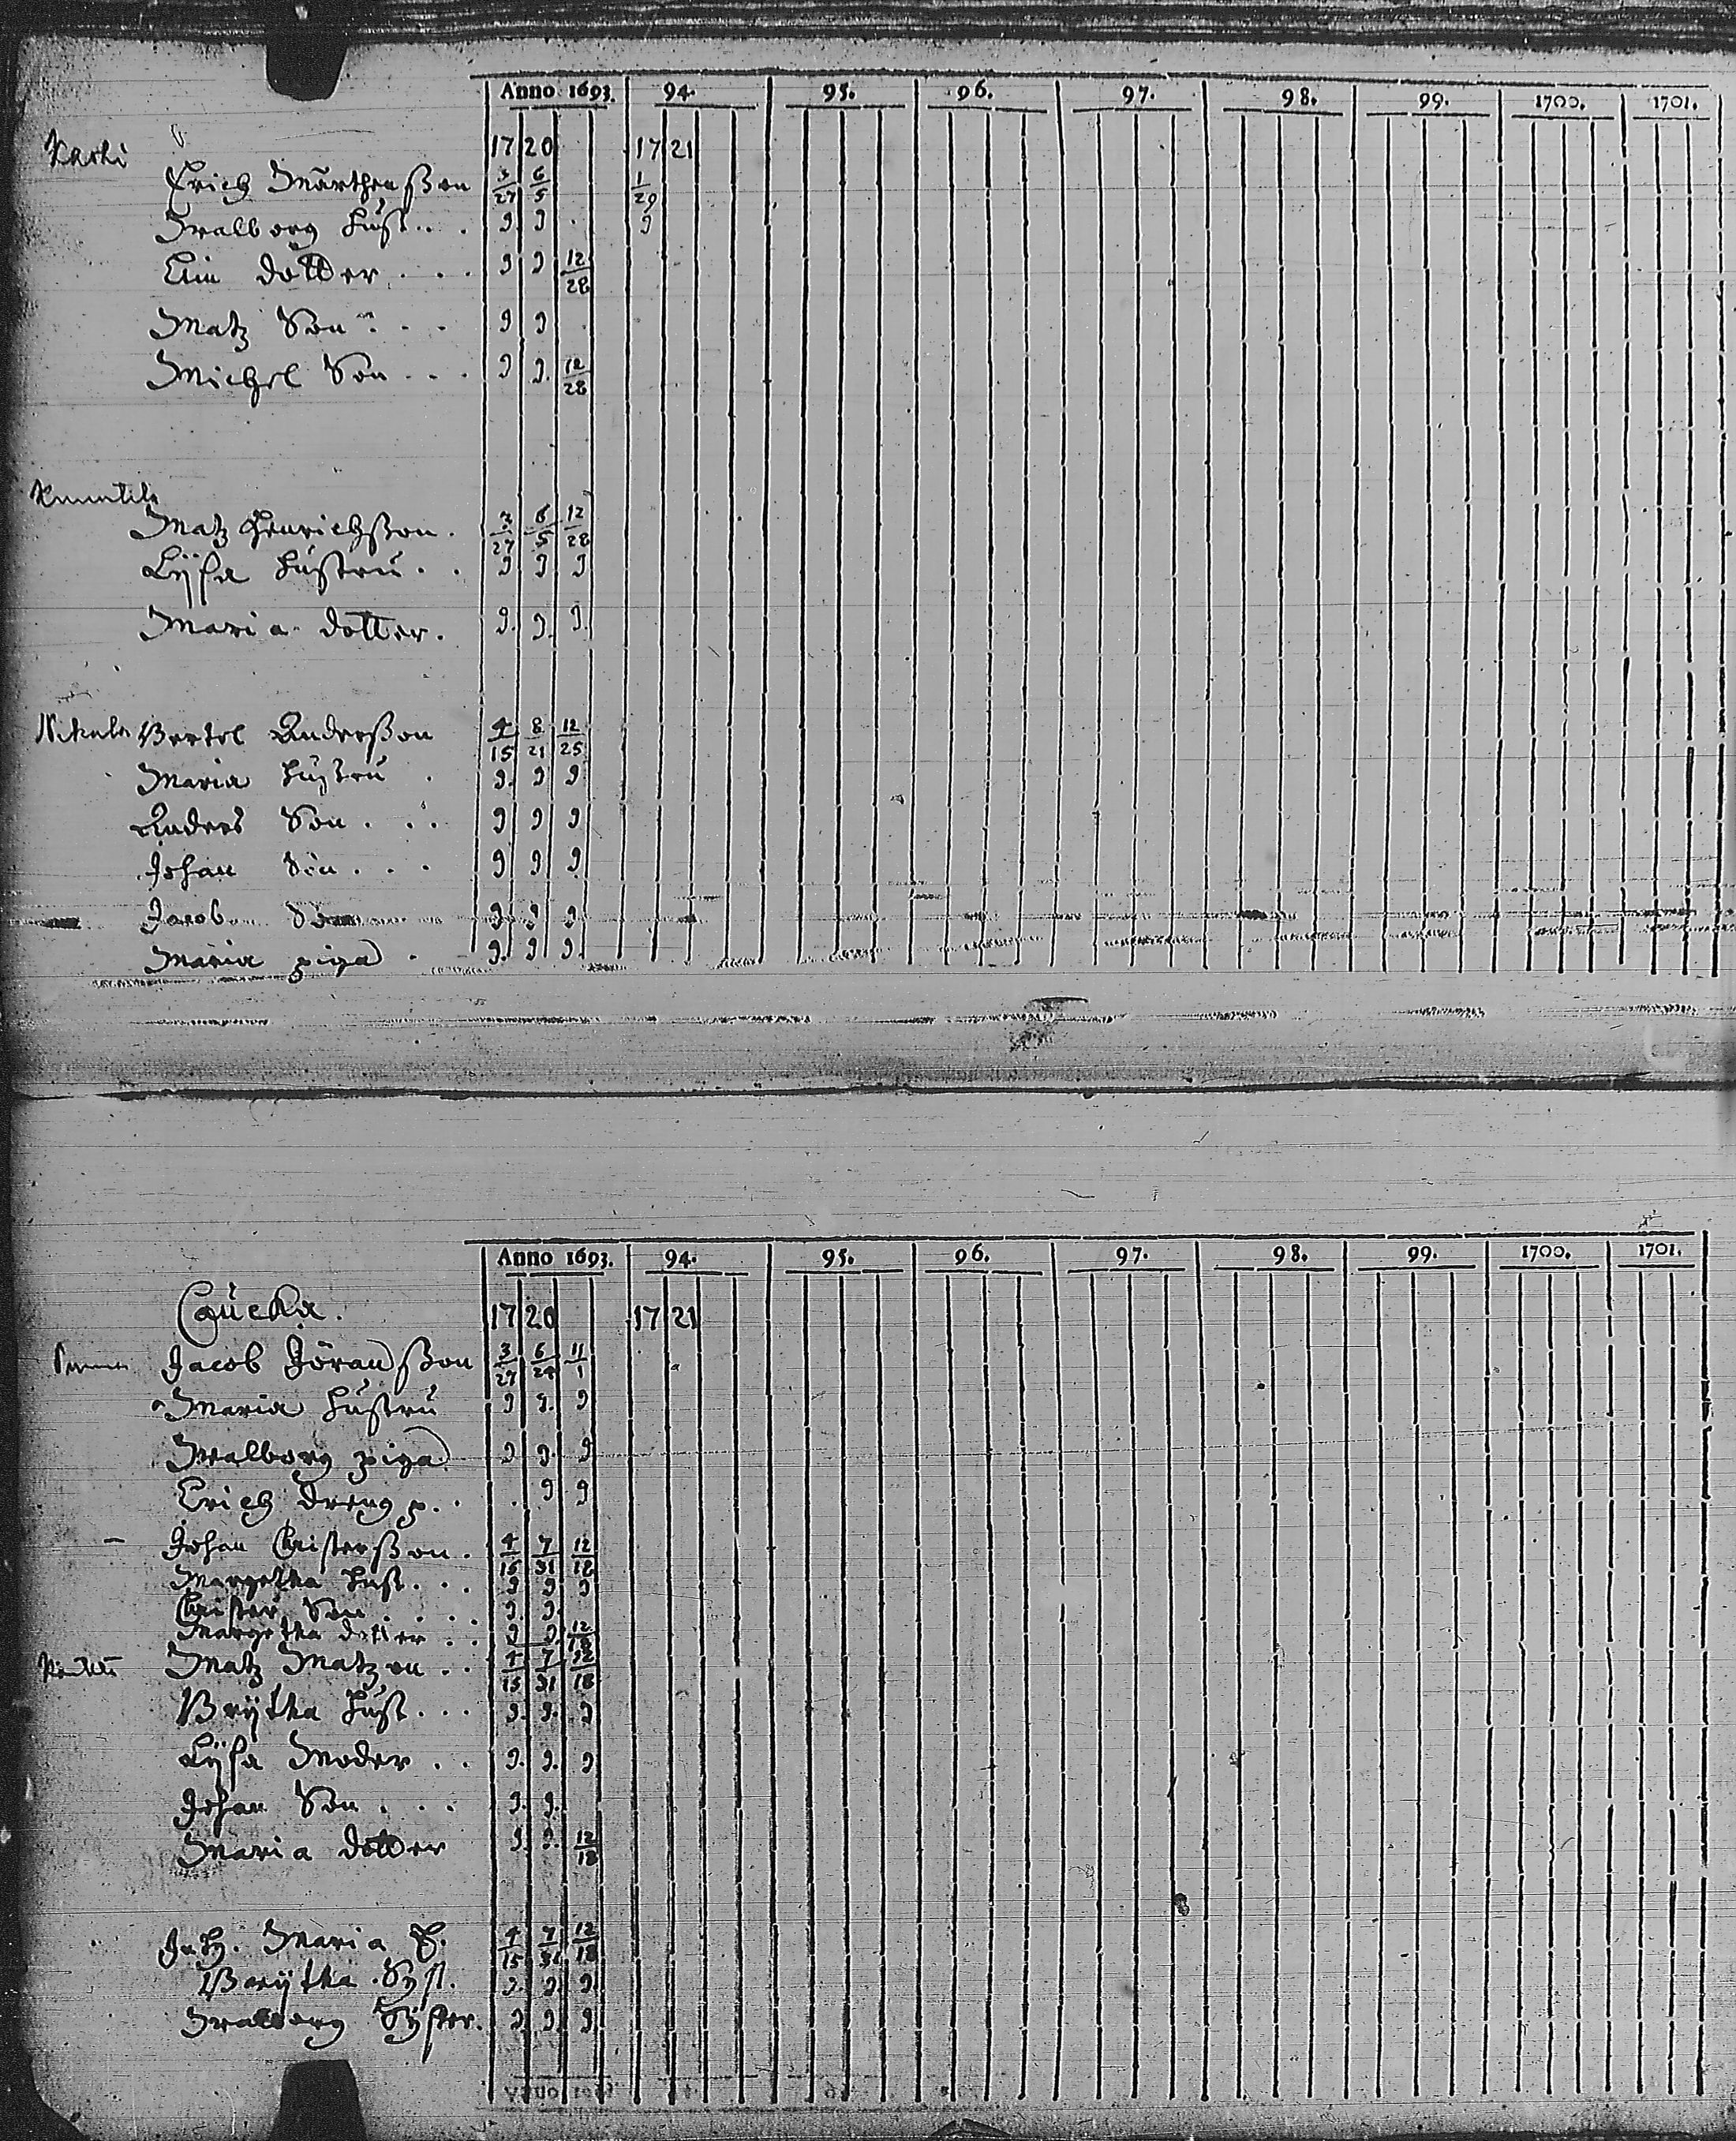 Anno 1693. 94. 95. 96. 97. 98. 99. 1700. 1701.
Karhi 17 20 17 21
Erich Mårthensson 3/27 6/5 1/29
Walborg hust.. . 9 9 . 9
Elin dotter . . . 9 9 12/28
Matz Son . . . 9 9
Michel Son . . . 9 9. 12/28
Knuutila
Matz Henrichsson. 3/27 6/5 12/28
Lijsa hustru . . 9 9 9
Maria dotter. 9. 9. 9.
Nikula Bertel Andersson 4/15 8/21 12/25
Maria hustru . 9. 9 9
Anders Son . . . 9 9 9
Johan Son . . . 9 9 9
Jacob Son 9. 9 9
Maria piga . 9. 9 9.
Anno 1693. 94. 95. 96. 97. 98. 99. 1700. 1701.
Caucka. 17 20 17 21
Jacob Göransson 3/27 6/24 11/1
Maria hustru 9 9. 9
Walborg piga 9 9. 9
Erich dreng p. . . 9 9
Johan Christersson. 4/15 7/31 12/18
Margetha hust. . . 9 9 9
Christer Son . . . . 9. 9.
Margetha dotter . . 9 9. 12/18
Matz Matzon . . 4/15 7/31 12/18
Brijtha hust. . . 9. 9. 9
Lijsa Moder . . 9. 9. 9
Johan Son . . . 9. 9.
Maria dotter 9. 9. 12/18
Inh. Maria E. 4/15 7/31 12/18
Brijtha Syst. 9. 9. 9.
Walborg Syster. 9 9. 9